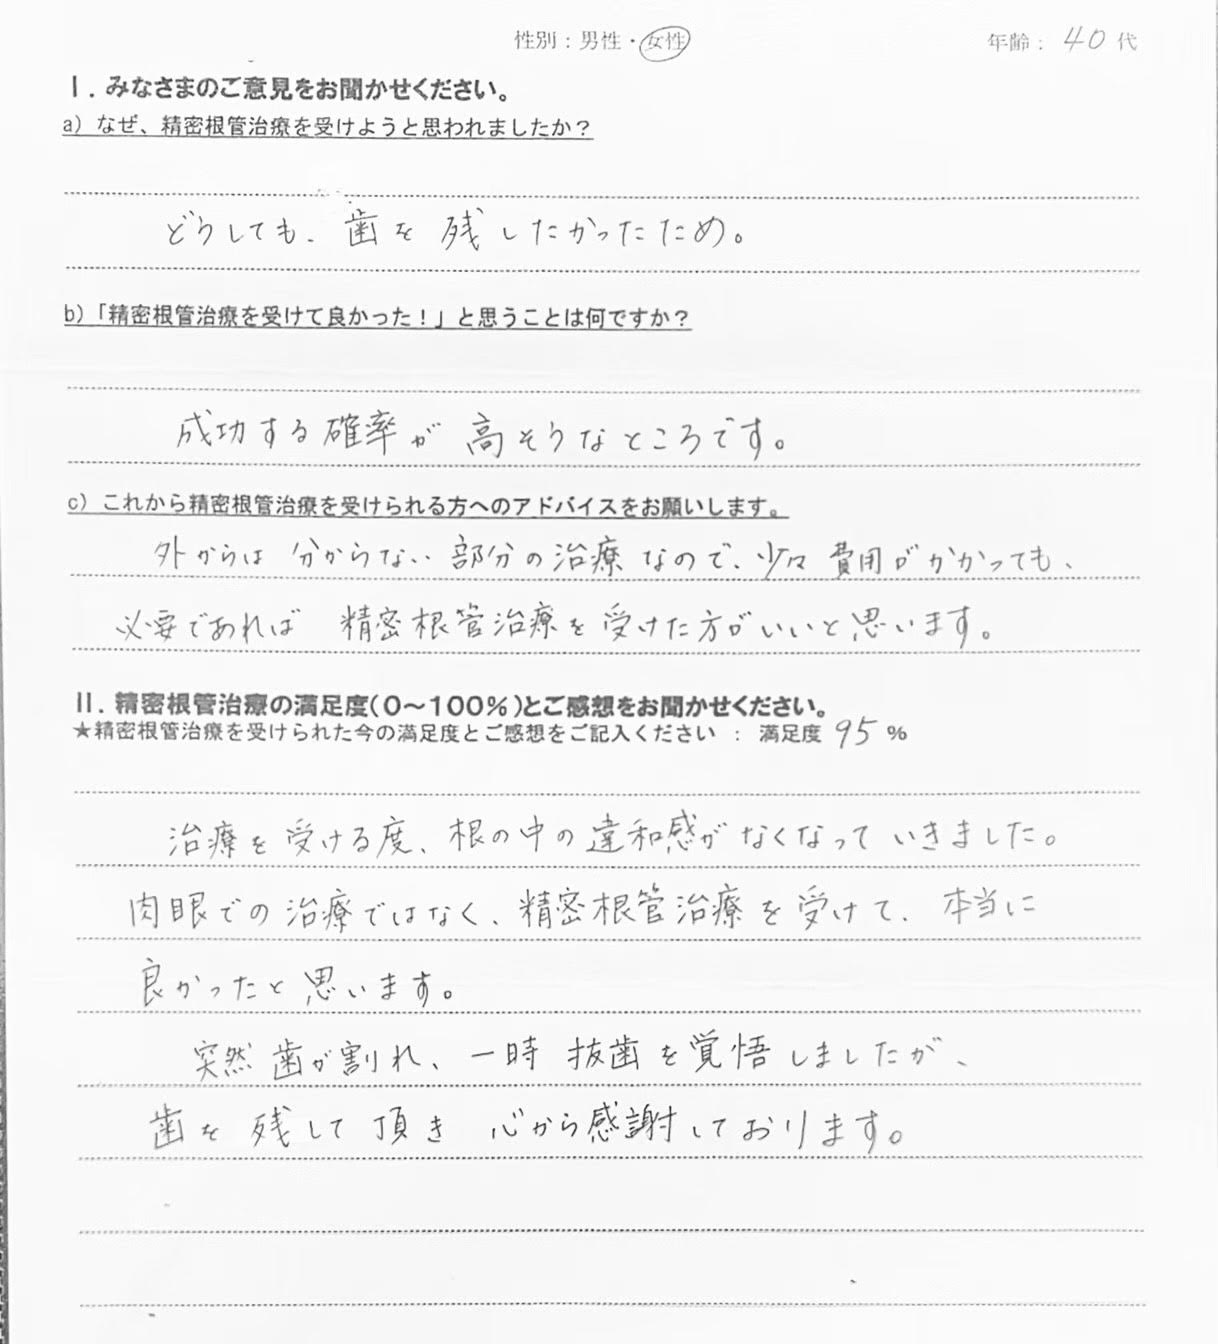 性別：男性・女性 年齢：40代
Ⅰ．みなさまのご意見をお聞かせください。
a）なぜ、精密根管治療を受けようと思われましたか？
どうしても、歯を残したかったため。
b）「精密根管治療を受けて良かった！」と思うことは何ですか？
成功する確率が高そうなところです。
c）これから精密根管治療を受けられる方へのアドバイスをお願いします。
外からは分からない部分の治療なので、少々費用がかかっても、
必要であれば精密根管治療を受けた方がいいと思います。
Ⅱ．精密根管治療の満足度（０～１００％）とご感想をお聞かせください。
★精密根管治療を受けられた今の満足度とご感想をご記入ください ： 満足度 95 %
治療を受ける度、根の中の違和感がなくなっていきました。
肉眼での治療ではなく、精密根管治療を受けて、本当に
良かったと思います。
突然歯が割れ、一時抜歯を覚悟しましたが、
歯を残して頂き心から感謝しております。